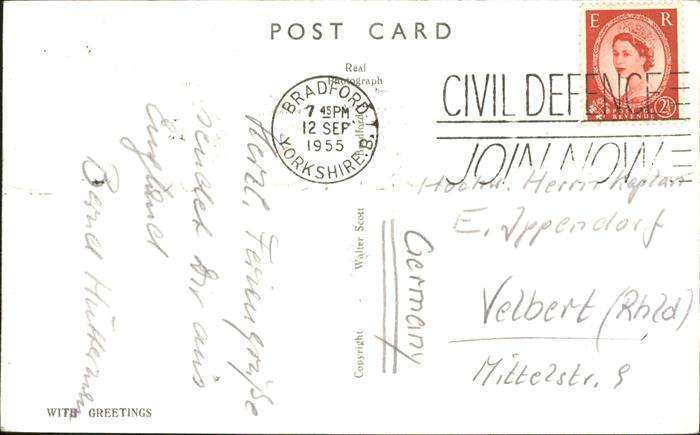 POST CARD
Real
Photograph
Bradford
Copyright - Walter Scott
WITH GREETINGS
E R
POSTAGE
REVENUE
2½
BRADFORD
7 45 PM
12 SEP
1955
YORKSHIRE. B.
CIVIL DEFENCE
JOIN NOW
Herzl. Feriengrüße
sendet Dir aus
England
Bernd
Hochw. Herrn Kaplan
E. Ippendorf
Velbert (Rhld)
Mittelstr. 9
Germany